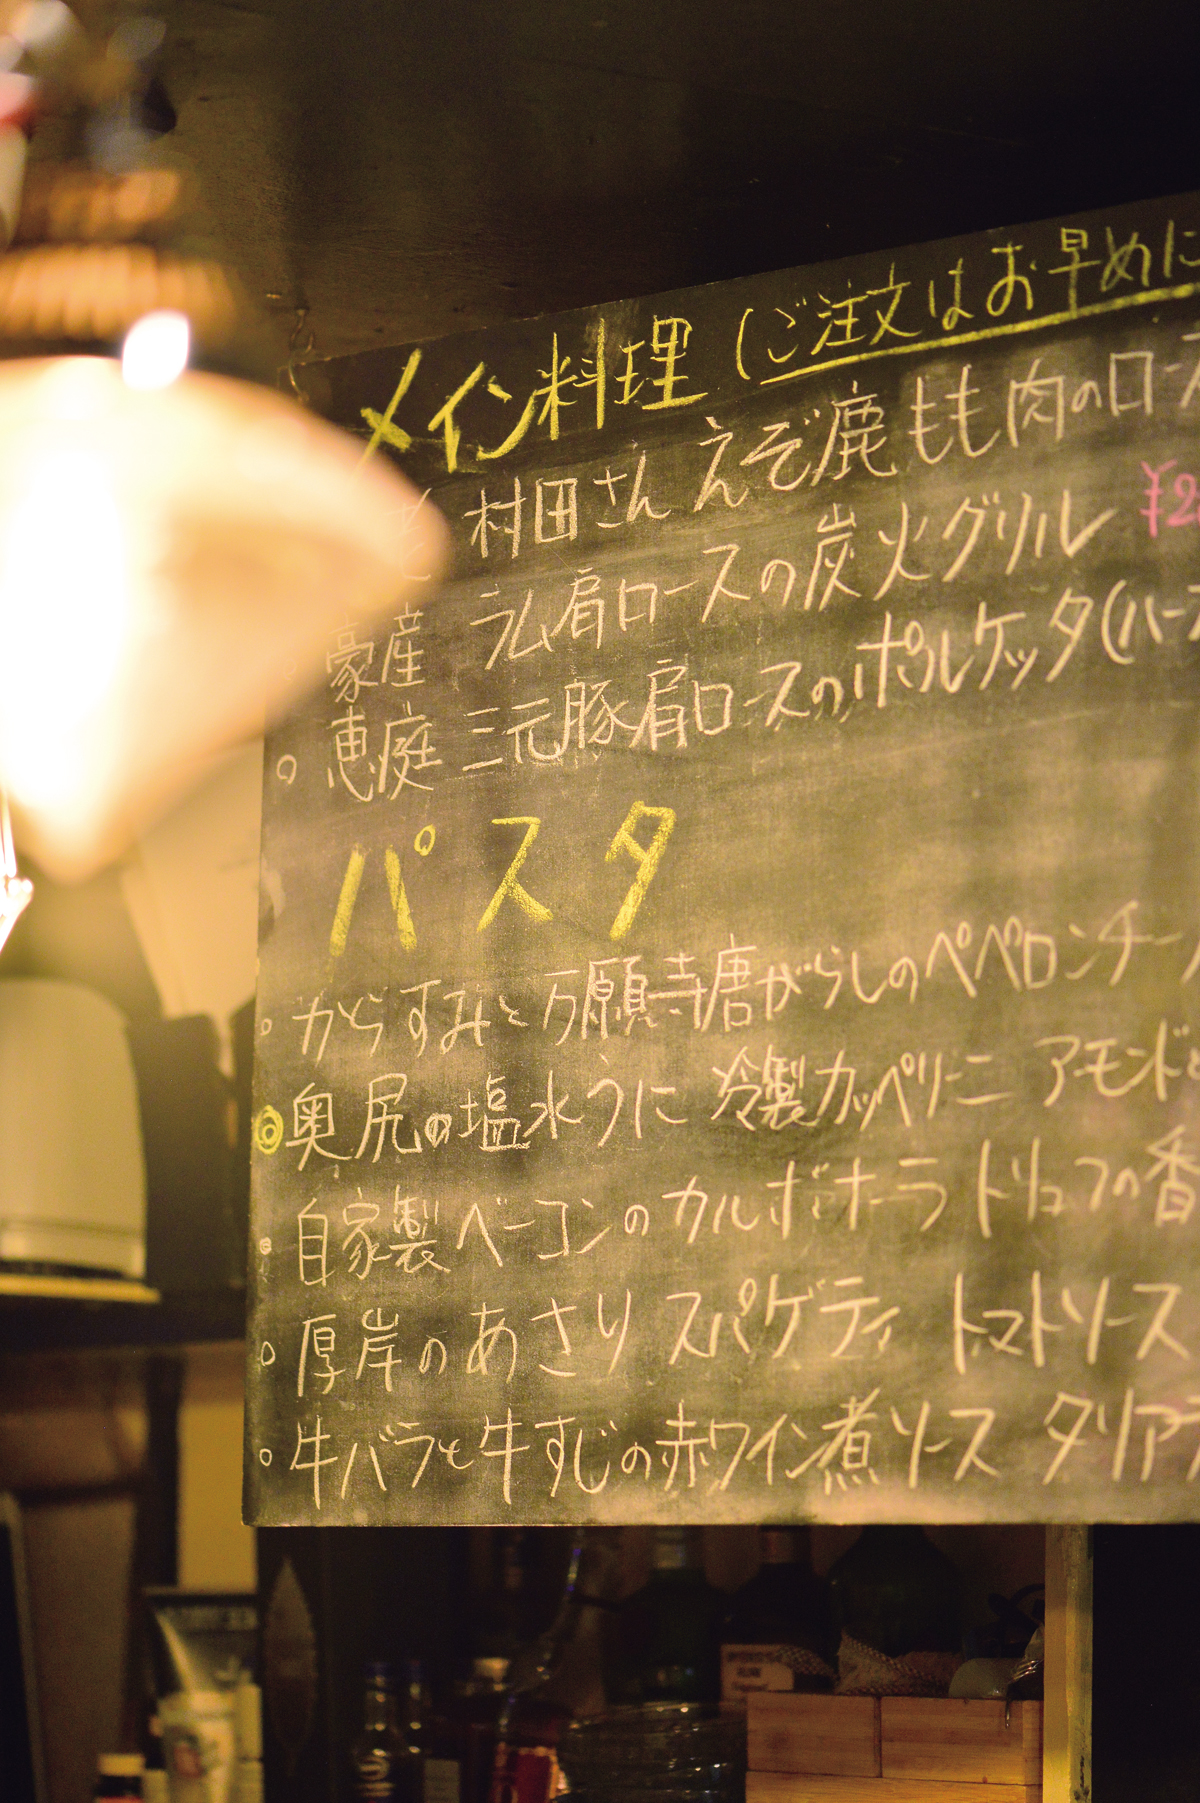 メイン料理 (ご注文はお早めに
村田さん えぞ鹿もも肉のロース
¥2
豪産 ラム肩ロースの炭火グリル
○ 恵庭 三元豚肩ロースのポルケッタ(ハーフ
パスタ
○ からすみと万願寺唐がらしのペペロンチーノ
◎ 奥尻の塩水うに 冷製カッペリーニ アモンドと
自家製ベーコンのカルボナーラ トリュフの香
○ 厚岸のあさり スパゲティ トマトソース
○ 牛バラと牛すじの赤ワイン煮ソース タリアテ